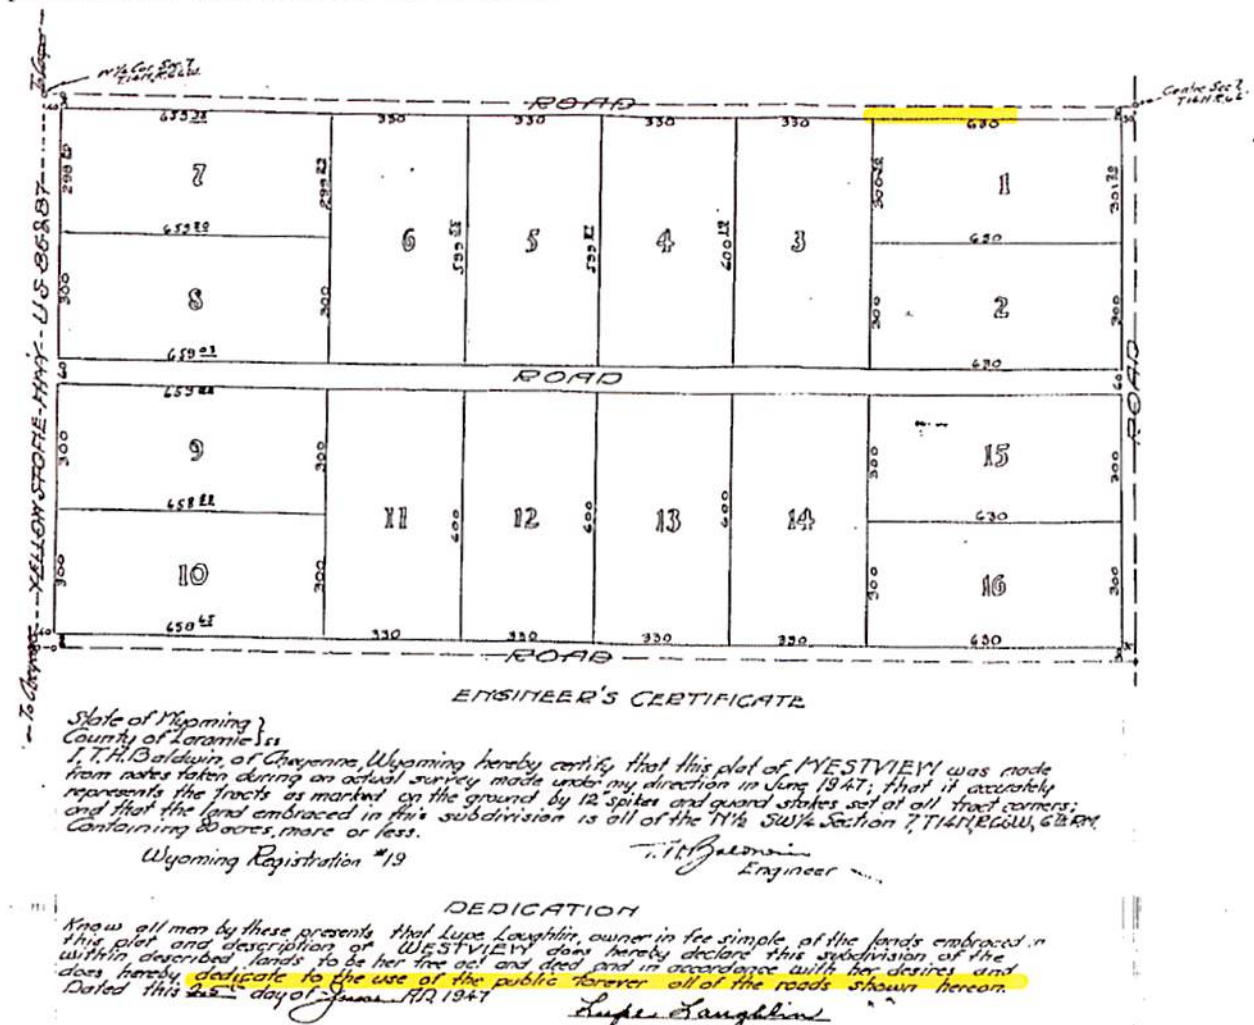 W¼ Cor. Sec. 7
T14N.R.66W.
Centre Sec 7.
T14N.R.66
ROAD
330 330 330 330 630
7
299 22
300
1
301
659 20
6
5
4
3
630
8
300
300
599
600
300
2
300
659 03
630
ROAD
YELLOWSTONE-HWY--U S-85&87
ROAD
60
60
9
300
300
300
15
300
11
600
12
600
13
600
14
630
10
300
300
300
16
300
330 330 330 330 630
ROAD
ENGINEER'S CERTIFICATE
State of Wyoming }
County of Laramie } ss
I, T.H. Baldwin, of Cheyenne, Wyoming hereby certify that this plat of WESTVIEW was made
from notes taken during an actual survey made under my direction in June 1947; that it accurately
represents the tracts as marked on the ground by 12 spikes and guard stakes set at all tract corners;
and that the land embraced in this subdivision is all of the N½ SW¼ Section 7, T14N,R66W, 6th P.M.
Containing 80 acres, more or less.
Wyoming Registration #19
T.H. Baldwin
Engineer
DEDICATION
Know all men by these presents that Lupe Laughlin, owner in fee simple of the lands embraced in
this plat and description of WESTVIEW does hereby declare this subdivision of the
within described lands to be her free act and deed and in accordance with her desires and
does hereby dedicate to the use of the public forever all of the roads shown hereon.
Dated this 25th day of June A.D. 1947
Lupe Laughlin